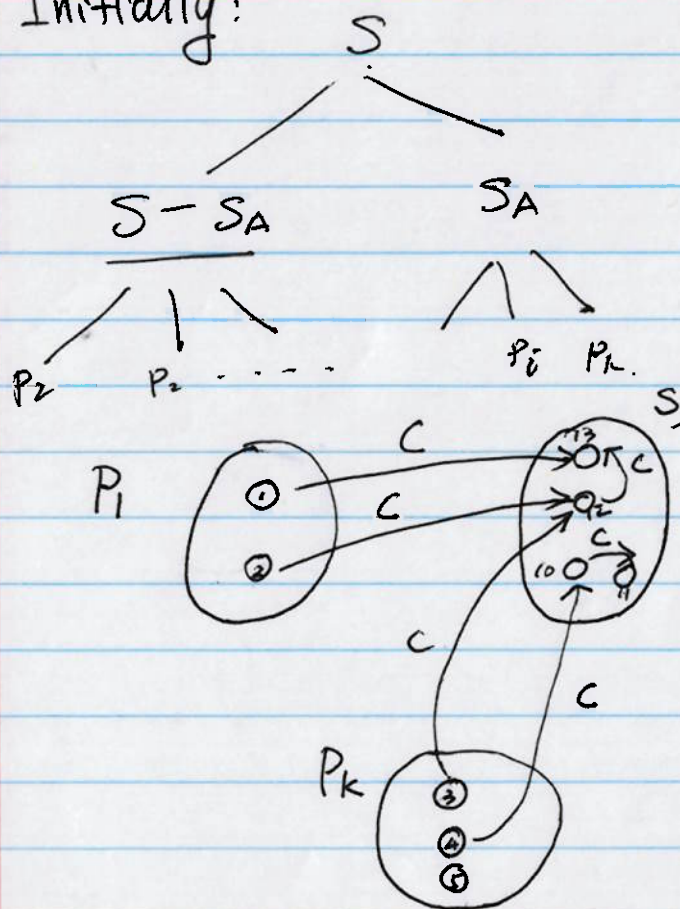 Initially:
S
S - SA
SA
P2 P2 - - - - -
Pi Pk.
S
P1
1
C
13
C
2
C
12
10
C
11
C
C
Pk
3
4
5